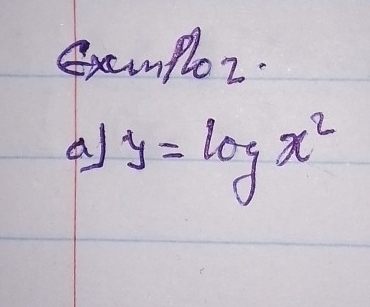 Exemplo 2.
a) y = log x²